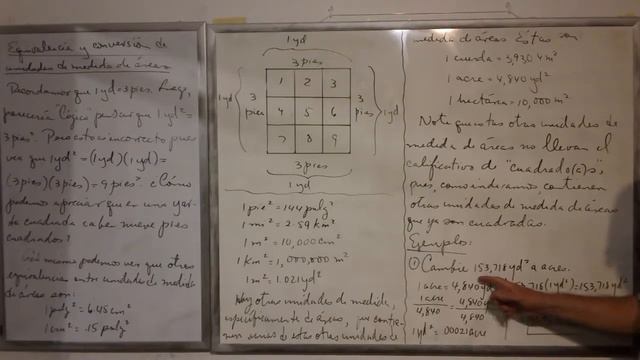 Equivalencia y conversión de
unidades de medida de áreas
Recordamos que 1yd=3pies. Luego,
parecería "lógico" pensar que 1yd²=
3pies². Pero esto es incorrecto pues
ver que 1yd²=(1yd)(1yd)=
(3pies)(3pies)=9pies². ¿Cómo
podemos apreciar que en una yar-
da cuadrada caben nueve pies
cuadrados?
Así mismo podemos ver que otras
equivalencias entre unidades de medida
de área son:
1pulg²=6.45cm²
1cm²=.15pulg²
1yd
3pies
1yd
3
pies
1 2 3
4 5 6
7 8 9
3
pies
1yd
3pies
1yd
1pie²=144pulg²
1mi²=2.59km²
1m²=10,000cm²
1km²=1,000,000m²
1m²=1.021yd²
Hay otras unidades de medida,
específicamente de áreas, que contienen
unas de estas otras unidades de
medida de áreas. Éstas son
1 cuerda=3,930.4m²
1 acre=4,840yd²
1 hectárea=10,000m²
Note que estas otras unidades de
medida de áreas no llevan el
calificativo de "cuadrado(a)s",
pues, como indicamos, contienen
otras unidades de medida de áreas
que ya son cuadradas.
Ejemplos:
① Cambie 153,718yd² a acres.
1 acre=4,840yd²
718(1yd²)=153,718yd²
1acre = 4,840
4,840 4,840
1yd²=.00021acre